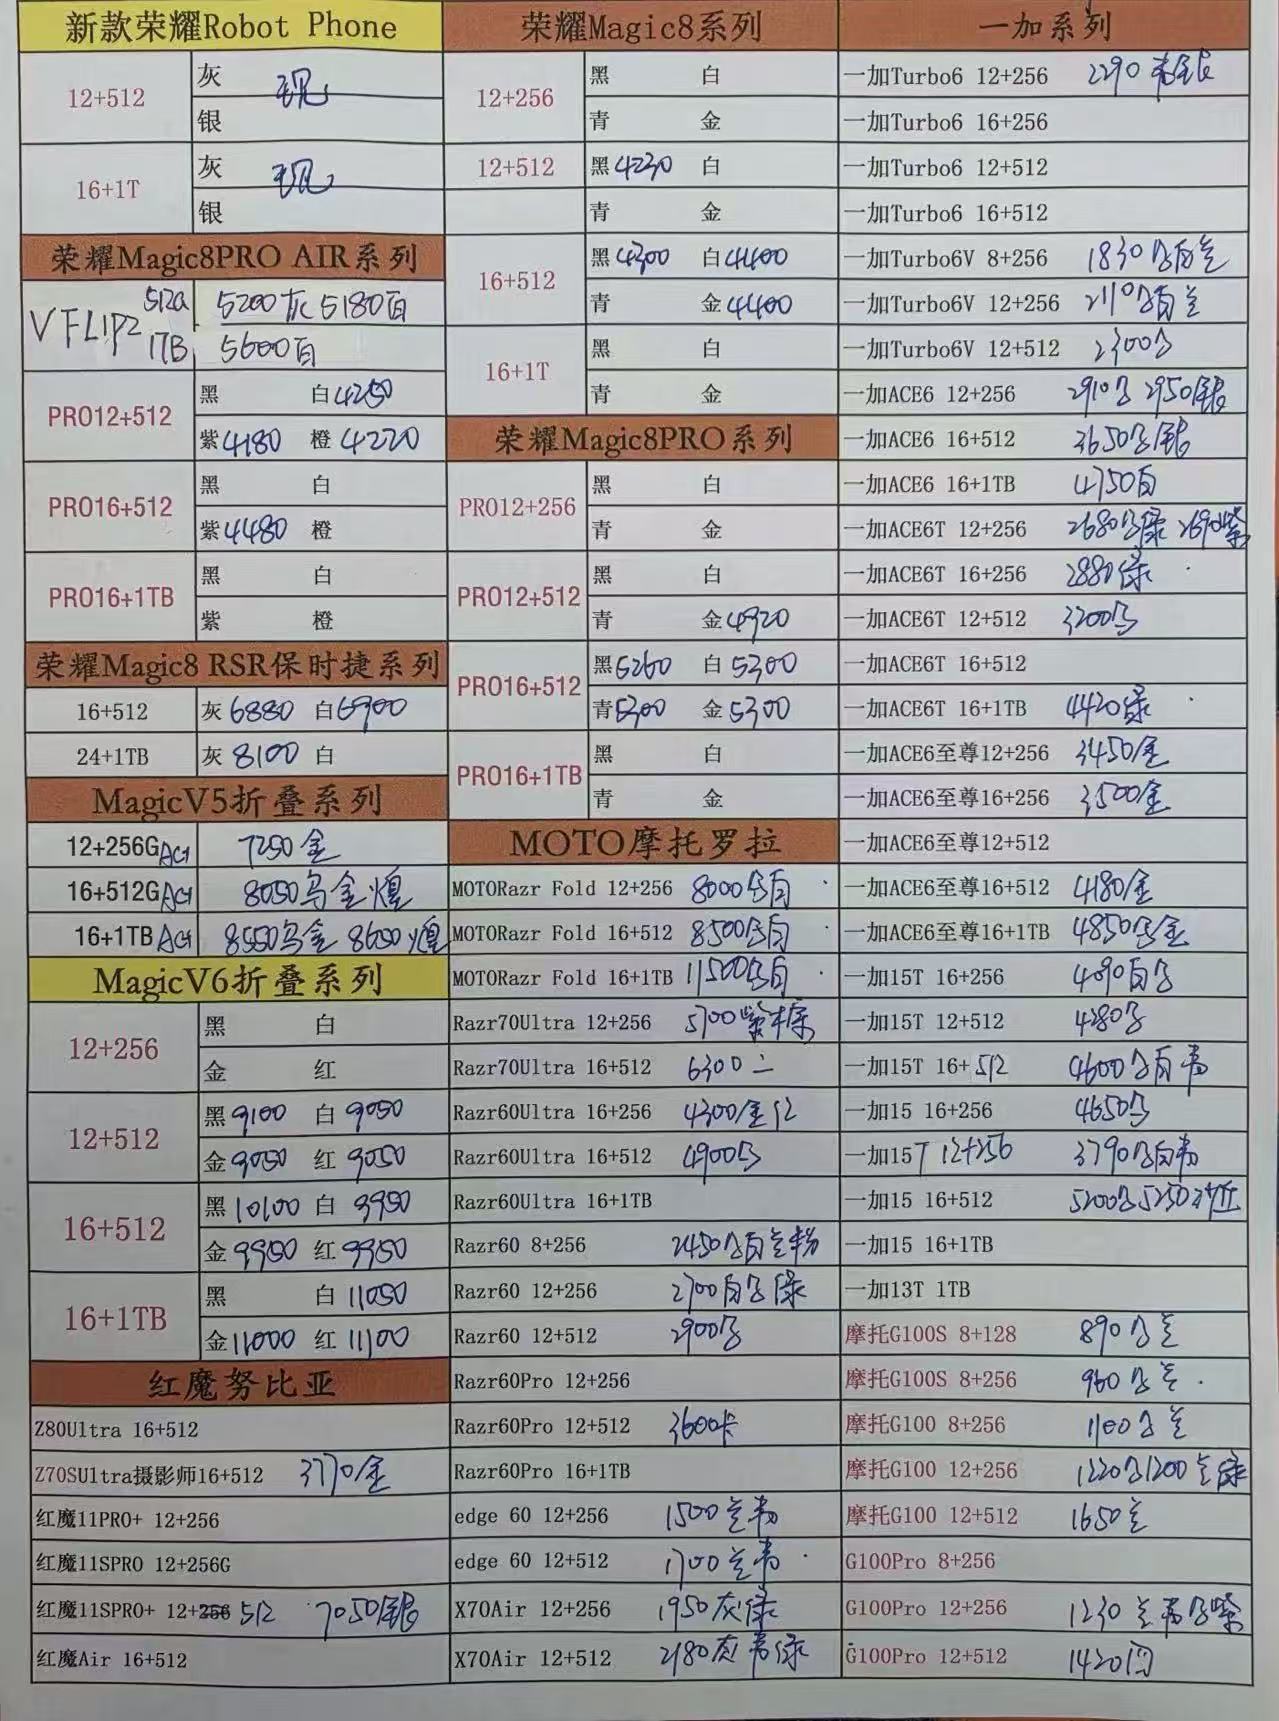 新款荣耀Robot Phone
12+512 灰 现
银
16+1T 灰 现
银
荣耀Magic8PRO AIR系列
VFLIP2 512G 5200灰 5180白
1TB 5600白
PRO12+512 黑 白4250
紫4180 橙4220
PRO16+512 黑 白
紫4480 橙
PRO16+1TB 黑 白
紫 橙
荣耀Magic8 RSR保时捷系列
16+512 灰6880 白6900
24+1TB 灰8100 白
MagicV5折叠系列
12+256G 7250金
16+512G 8050乌金煌
16+1TB 8550乌金 8650煌
MagicV6折叠系列
12+256 黑 白
金 红
12+512 黑9100 白9050
金9050 红9050
16+512 黑10100 白9950
金9950 红9950
16+1TB 黑 白11050
金11000 红11100
红魔努比亚
Z80Ultra 16+512
Z70SUltra摄影师16+512 3770金
红魔11PRO+ 12+256
红魔11SPRO 12+256G
红魔11SPRO+ 12+256 512 7050银
红魔Air 16+512
荣耀Magic8系列
12+256 黑 白
青 金
12+512 黑4230 白
青 金
16+512 黑4300 白4400
青 金4400
16+1T 黑 白
青 金
荣耀Magic8PRO系列
PRO12+256 黑 白
青 金
PRO12+512 黑 白
青 金4920
PRO16+512 黑5260 白5300
青5300 金5300
PRO16+1TB 黑 白
青 金
MOTO摩托罗拉
MOTORazr Fold 12+256 8000白
MOTORazr Fold 16+512 8500白
MOTORazr Fold 16+1TB 11500白
Razr70Ultra 12+256 5700紫
Razr70Ultra 16+512 6300
Razr60Ultra 16+256 4300金红
Razr60Ultra 16+512 4900
Razr60Ultra 16+1TB
Razr60 8+256 2450白兰粉
Razr60 12+256 2700白 绿
Razr60 12+512 2900
Razr60Pro 12+256
Razr60Pro 12+512 3600卡
Razr60Pro 16+1TB
edge 60 12+256 1500兰
edge 60 12+512 1700兰青
X70Air 12+256 1950灰绿
X70Air 12+512 2180灰青绿
一加系列
一加Turbo6 12+256 2290 银
一加Turbo6 16+256
一加Turbo6 12+512
一加Turbo6 16+512
一加Turbo6V 8+256 1830 白兰
一加Turbo6V 12+256 2110 白兰
一加Turbo6V 12+512 2300
一加ACE6 12+256 2910 2950银
一加ACE6 16+512 3650 银
一加ACE6 16+1TB 4750白
一加ACE6T 12+256 2680 绿 2690紫
一加ACE6T 16+256 2880绿
一加ACE6T 12+512 3200
一加ACE6T 16+512
一加ACE6T 16+1TB 4420绿
一加ACE6至尊12+256 3450金
一加ACE6至尊16+256 3500金
一加ACE6至尊12+512
一加ACE6至尊16+512 4180金
一加ACE6至尊16+1TB 4850 金
一加15T 16+256 4090白
一加15T 12+512 4280
一加15T 16+512 4600 白青
一加15 16+256 4650
一加15T 12+256 3790 白
一加15 16+512 5200 5250
一加15 16+1TB
一加13T 1TB
摩托G100S 8+128 890 兰
摩托G100S 8+256 960 兰
摩托G100 8+256 1100 兰
摩托G100 12+256 1220 1200兰绿
摩托G100 12+512 1650兰
G100Pro 8+256
G100Pro 12+256 1230 兰青 紫
G100Pro 12+512 1420